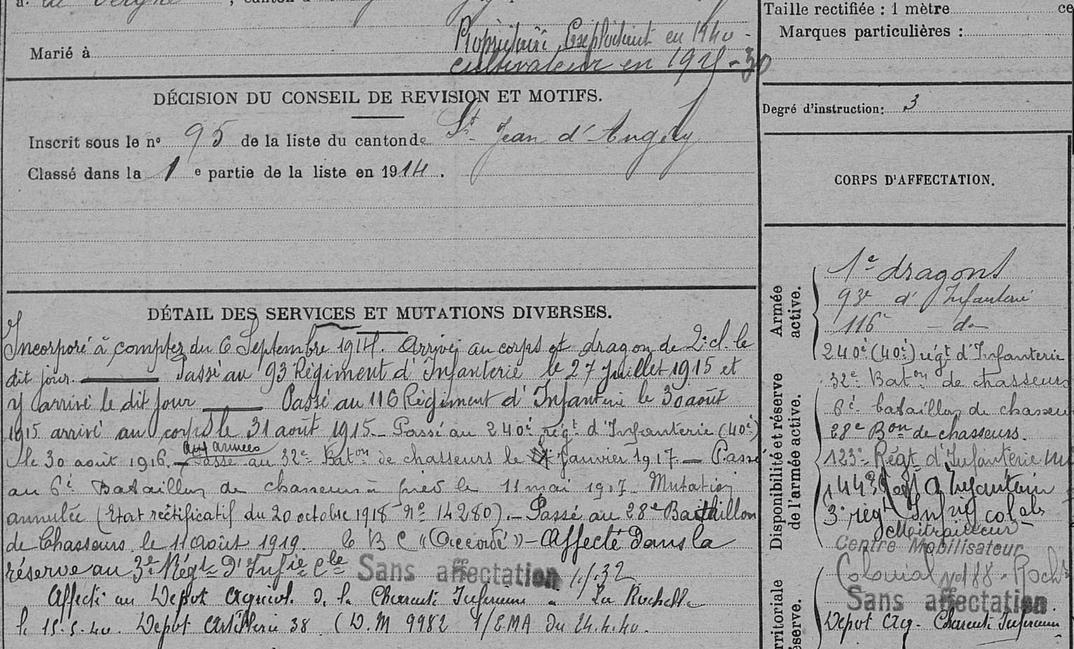 à la Vergne, canton d
Marié à
Propriétaire Exploitant en 1940 -
cultivateur en 1925-30
DÉCISION DU CONSEIL DE REVISION ET MOTIFS.
Inscrit sous le no 95 de la liste du canton de St Jean d'Angély
Classé dans la 1e partie de la liste en 1914.
DÉTAIL DES SERVICES ET MUTATIONS DIVERSES.
Incorporé à compter du 6 Septembre 1914. Arrivé au corps et dragon de 2e cl. le
dit jour. Passé au 93 Régiment d'Infanterie le 27 Juillet 1915 et
y arrivé le dit jour Passé au 116 Régiment d'Infanterie le 30 août
1915 arrivé au corps le 31 août 1915. Passé au 240e régt d'Infanterie (40e)
aux armées
le 30 août 1916. - Passé au 32e Baton de chasseurs le janvier 1917 - Passé
au 6e Bataillon de chasseurs à pied le 11 mai 1917. Mutation
annulée (Etat rectificatif du 20 octobre 1918 No 14280). - Passé au 28e Bataillon
de Chasseurs le 11 Août 1919. C B C "Accordé" - Affecté dans la
réserve au 3e Régt D'Infie Cle Sans affectation 1/1/32
Affecté au Depot Agricol. D. la Charente Inferieure a La Rochelle
le 15.5.40. Depot Artillerie 38. (D.M 9982 1/EMA du 24.4.40.
Taille rectifiée : 1 mètre ce
Marques particulières :
Degré d'instruction: 3
CORPS D'AFFECTATION.
Armée active.
1e dragons
93e d'Infanterie
116 - do -
Disponibilité et réserve de l'armée active.
240e (40e) régt d'Infanterie
32e Baton de chasseurs
6e bataillon de chasseurs
28e Bon de chasseurs.
123e Régt d'Infanterie
144e Régt d'Infanterie
3e régt Infie colale
Mitrailleur
Centre Mobilisateur
Colonial no 188 - Roch
territoriale
réserve.
Sans affectation
Depot Agr. Charente Inferieure